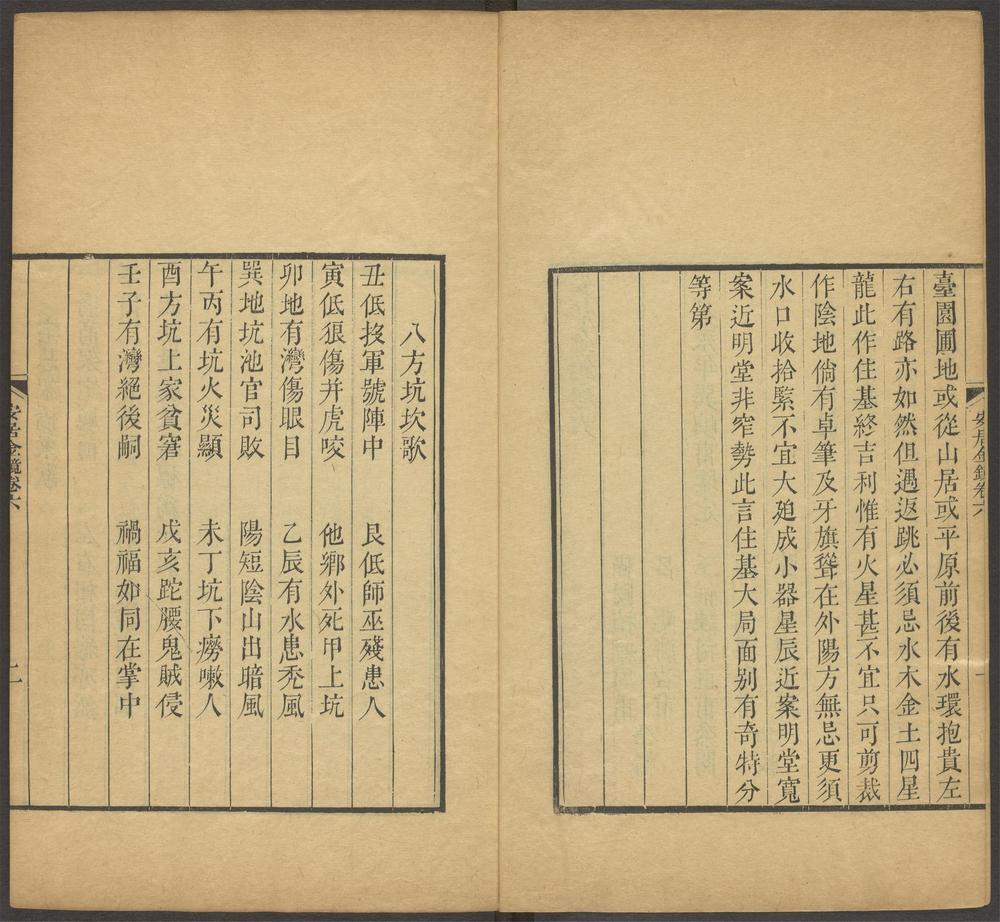 臺園圃地或從山居或平原前後有水環抱貴左
右有路亦如然但遇返跳必須忌水木金土四星
龍此作住基終吉利惟有火星甚不宜只可剪裁
作陰地倘有卓筆及牙旗聳在外陽方無忌更須
水口收拾緊不宜大廹成小器星辰近案明堂寬
案近明堂非窄勢此言住基大局面别有奇特分
等第
安居金鏡卷六
一
八方坑坎歌
丑低投軍號陣中 艮低師巫殘患人
寅低狠傷并虎咬 他鄉外死甲上坑
卯地有灣傷眼目 乙辰有水患秃風
巽地坑池官司敗 陽短陰山出暗風
午丙有坑火災顯 未丁坑下癆嗽人
酉方坑上家貧窘 戌亥跎腰鬼賊侵
壬子有灣絕後嗣 禍福如同在掌中
安居金鏡卷六
二